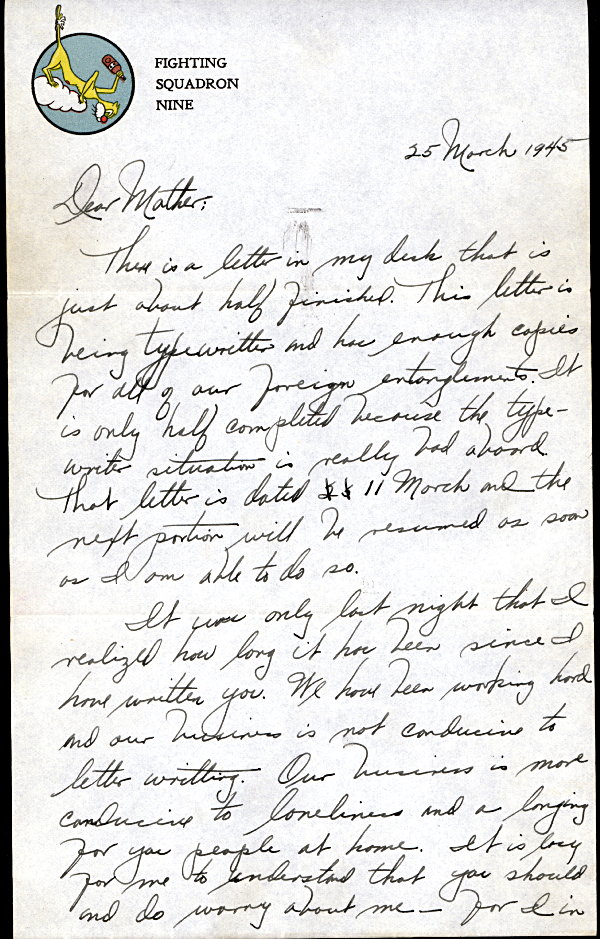 FIGHTING
SQUADRON
NINE
25 March 1945
Dear Mother:
There is a letter in my desk that is
just about half finished. This letter is
being typewritten and has enough copies
for all of our foreign entanglements. It
is only half completed because the type-
writer situation is really bad aboard.
That letter is dated 11 March and the
next portion will be resumed as soon
as I am able to do so.
It was only last night that I
realized how long it has been since I
have written you. We have been working hard
and our business is not conducive to
letter writting. Our business is more
conducive to loneliness and a longing
for you people at home. It is easy
for me to understand that you should
and do worry about me — for I in